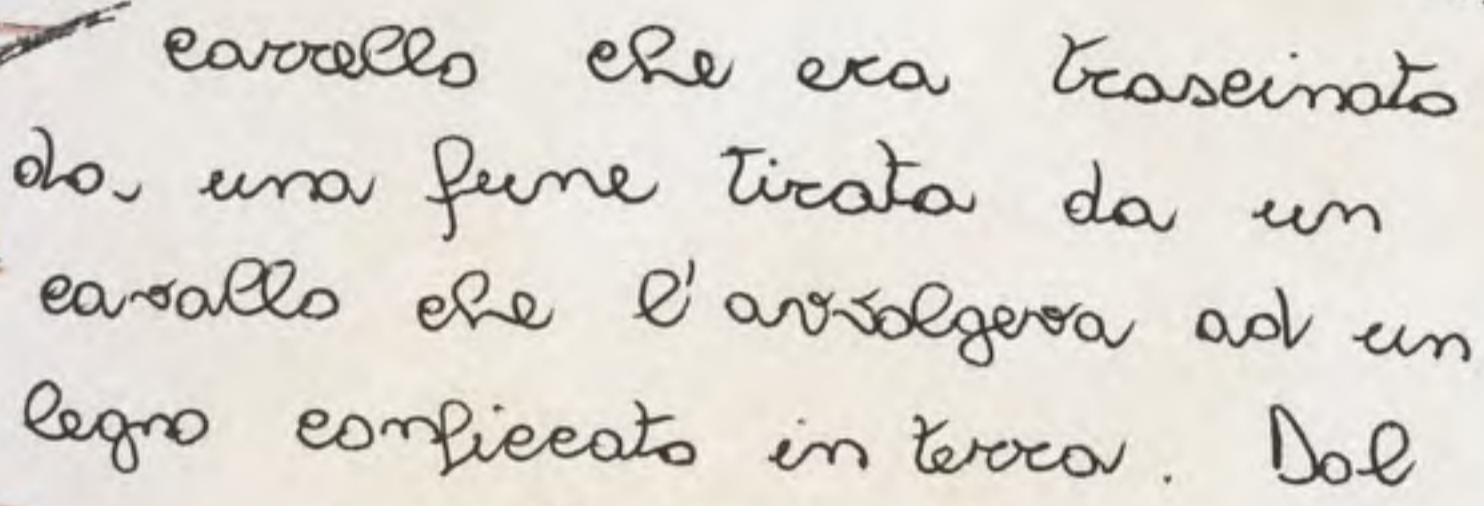 carrello che era trascinato
da una fune tirata da un
cavallo che l'avvolgeva ad un
legno conficcato in terra. Dal